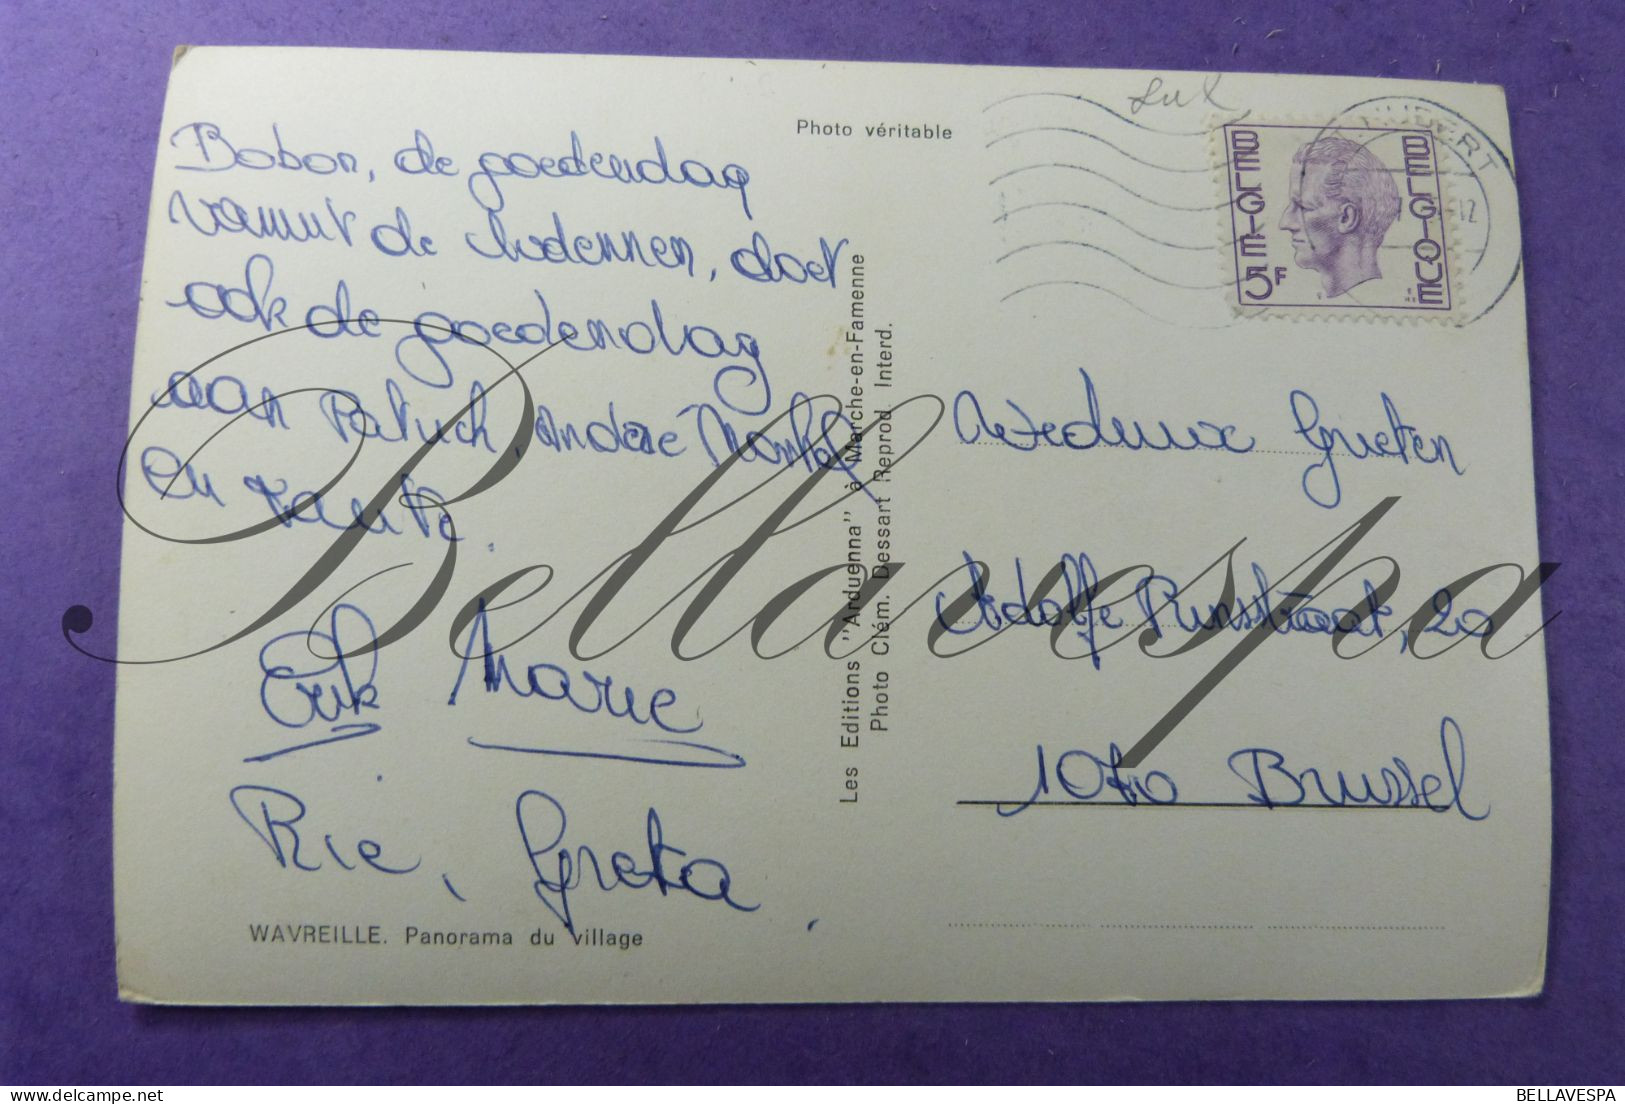 Photo véritable
Bobon, de goedendag
vanuit de Ardennen, doet
ook de goedendag
aan Patrick, Andreé Michel
en tante.
Erik Marie
Rie, Greta.
WAVREILLE. Panorama du village
Les Editions "Arduenna" à Marche-en-Famenne
Photo Clém. Dessart Reprod. Interd.
BELGIE 5F
BELGIQUE
HUBERT
12
Greten
Adolfe Prinsstraat, 20
1070 Brussel
Bellavespa
BELLAVESPA